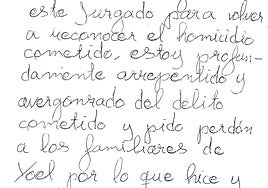 este Jurgado para volver
a reconocer el homicidio
cometido, estoy profun-
damente arrepentido y
avergonrado del delito
cometido y pido perdón
a los familiares de
Yoel por lo que hice y